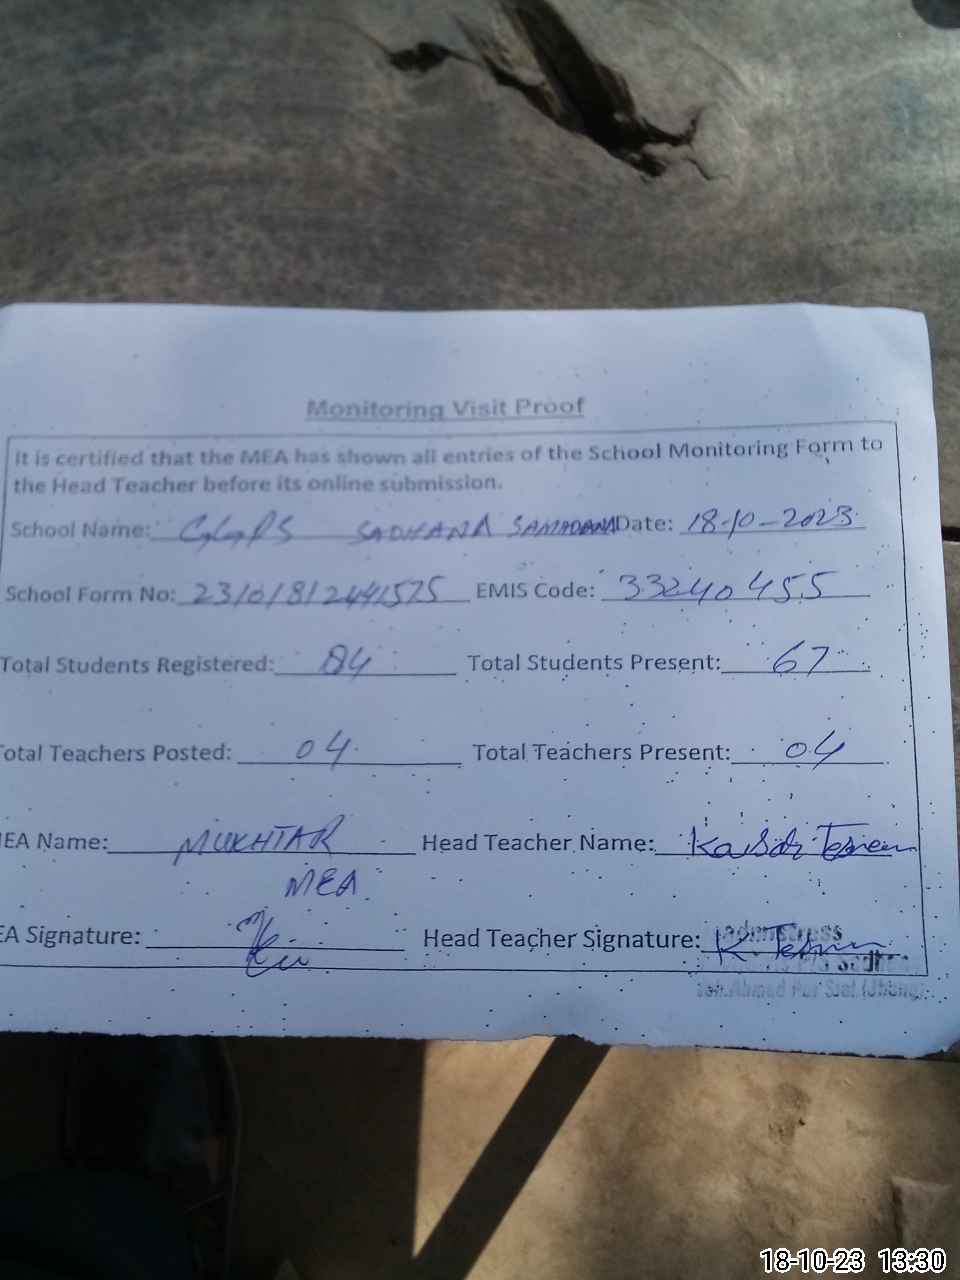 Monitoring Visit Proof
It is certified that the MEA has shown all entries of the School Monitoring Form to
the Head Teacher before its online submission.
School Name: GGPS SADHANA Date: 18-10-2023
School Form No: EMIS Code: 33240455
Total Students Registered: 84 Total Students Present: 67
otal Teachers Posted: 04 Total Teachers Present: 04
EA Name: MUKHTAR Head Teacher Name:
MEA
EA Signature: Head Teacher Signature:
admistress
Ahmed Pur Sial (Jhang)
18-10-23 13:30